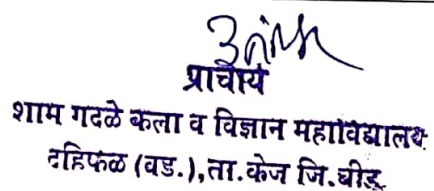 प्राचार्य
शाम गदळे कला व विज्ञान महाविद्यालय
दहिफळ (वड.),ता.केज जि.बीड